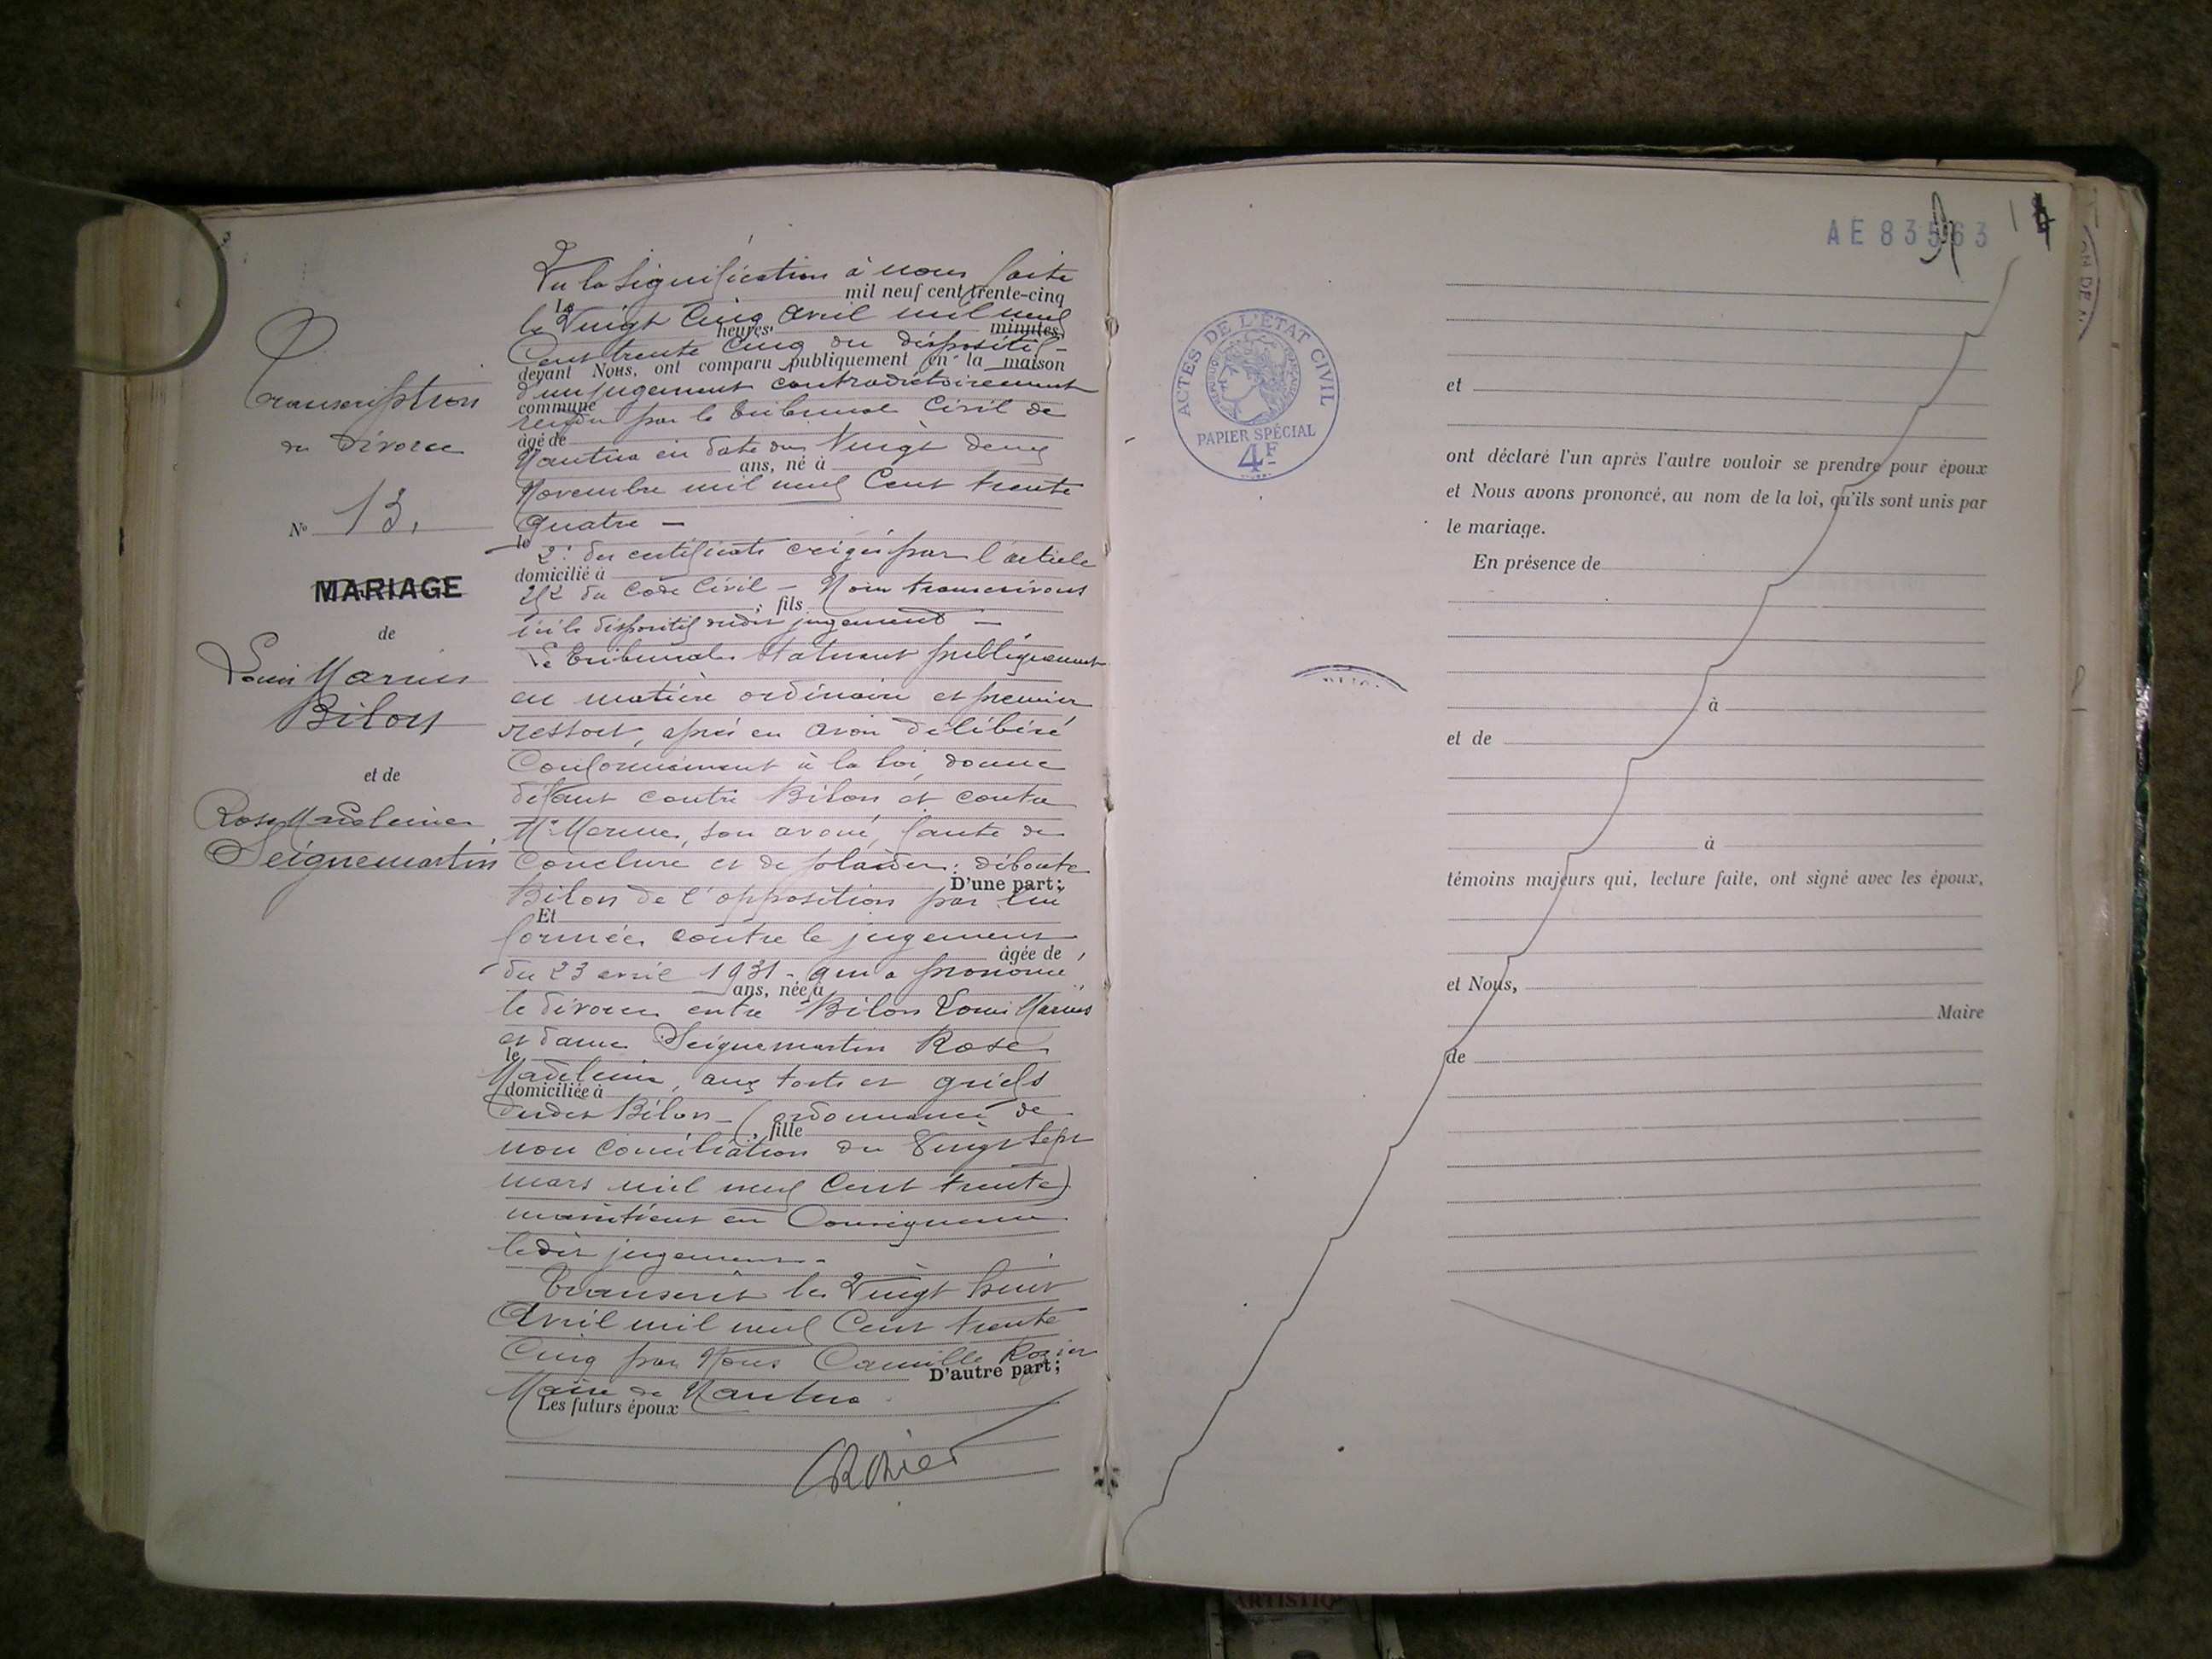 Transcription
de Divorce
N° 13.
MARIAGE
de
Louis Marius
Bilon
et de
Rose Madeleine
Seignemartin
Vu la signification à nous faite
mil neuf cent trente-cinq
Le
le Vingt Cinq Avril mil neuf
heures
minutes
Cent trente Cinq du dispositif
devant Nous, ont comparu publiquement en la maison
d'un jugement contradictoirement
commune
rendu par le Tribunal Civil de
âgé de
Nantua en date du Vingt deux
ans, né à
Novembre mil neuf Cent trente
quatre —
le
2° des certificats exigés par l'article
domicilié à
252 du Code Civil — Nous transcrivons
; fils
ici le dispositif dudit jugement —
Le Tribunal Statuant publiquement
en matière ordinaire et premier
ressort, après en avoir délibéré
Conformément à la loi, donne
défaut contre Bilon et contre
son avoué, faute de
Conclure et de plaider; déboute
D'une part;
Bilon de l'opposition par lui
Et
formée contre le jugement
âgée de
du 23 avril 1931 - qui a prononcé
ans, née à
le divorce entre Bilon Louis Marius
et dame Seignemartin Rose
le
Madeleine, aux torts et griefs
domiciliée à
dudit Bilon - (ordonnance de
, fille
non Conciliation du Vingt Sept
mars mil neuf Cent trente)
maintient en Conséquence
ledit jugement.
Transcrit le Vingt huit
Avril mil neuf Cent trente
Cinq par Nous Camille Rozier
D'autre part;
Maire de Nantua
Les futurs époux
CRozier
AE 83563
ACTES DE L'ÉTAT CIVIL
RÉPUBLIQUE FRANÇAISE
PAPIER SPÉCIAL
4F
et
ont déclaré l'un après l'autre vouloir se prendre pour époux
et Nous avons prononcé, au nom de la loi, qu'ils sont unis par
le mariage.
En présence de
à
et de
à
témoins majeurs qui, lecture faite, ont signé avec les époux,
et Nous,
Maire
de
ARTISTIQ